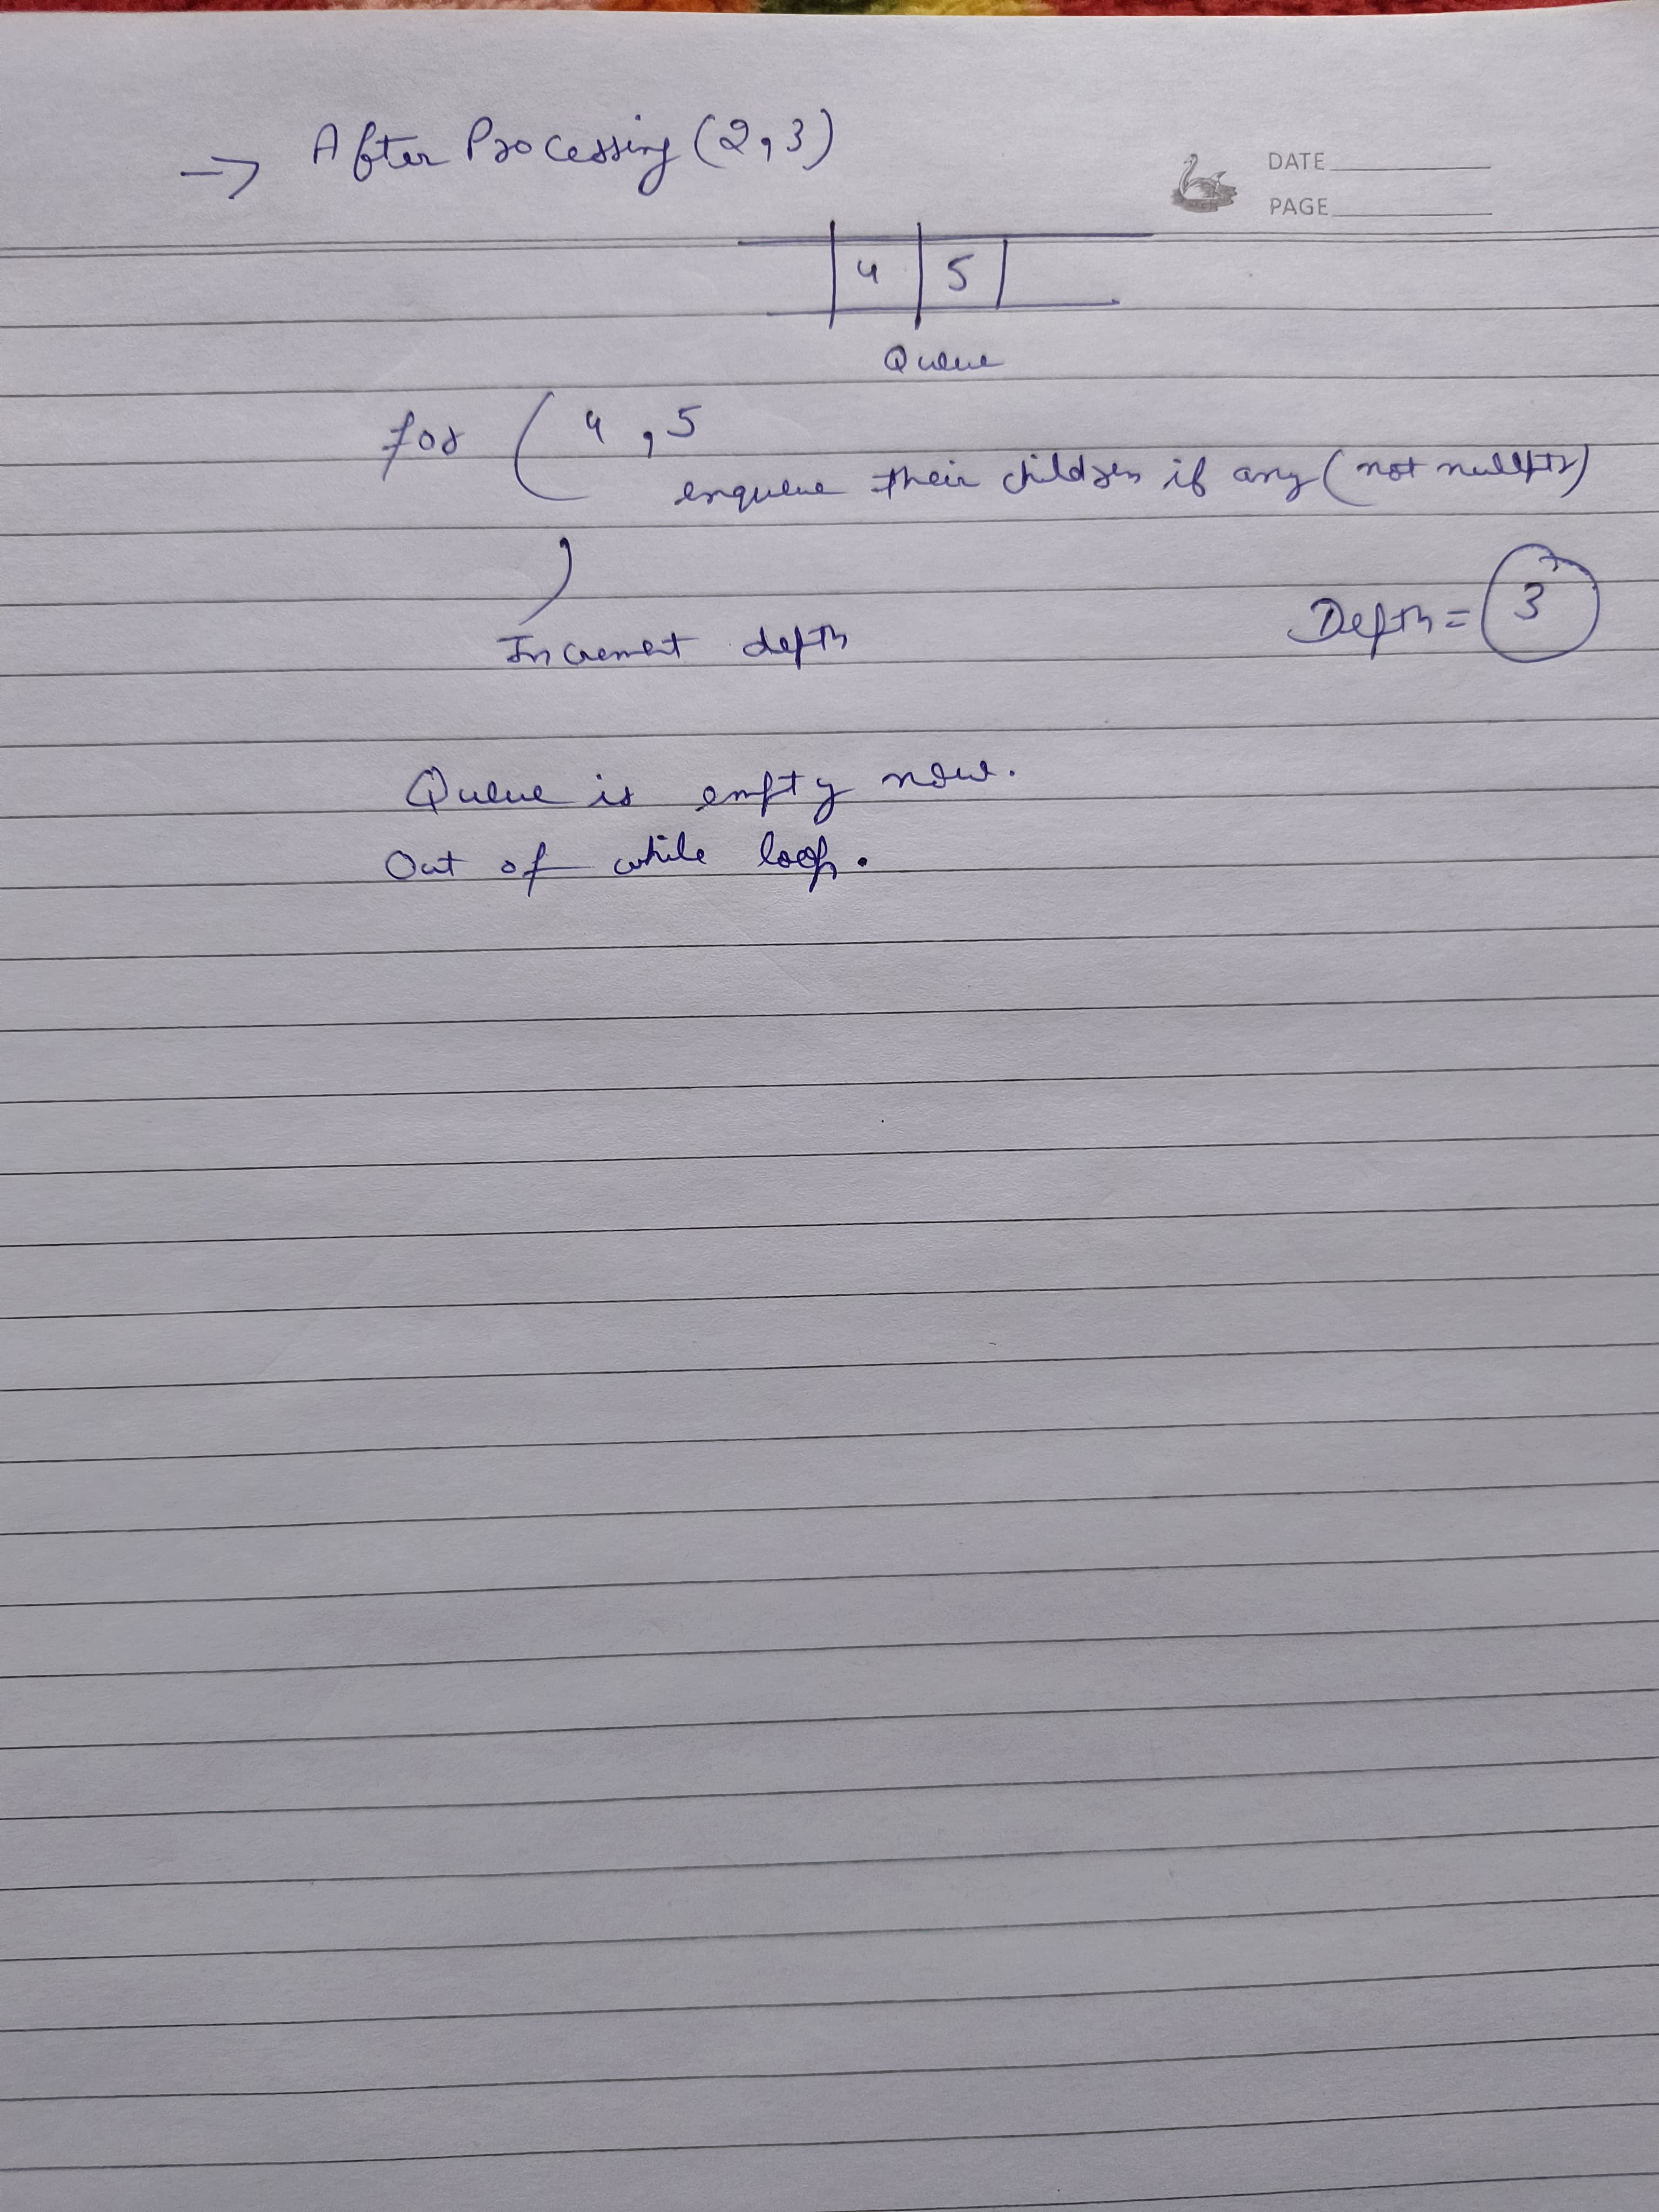 → After Processing (2,3)
DATE
PAGE
4 5
Queue
for ( 4, 5
enqueue their children if any (not nullptr)
Increment depth
Depth = 3
Queue is empty now.
Out of while loop.